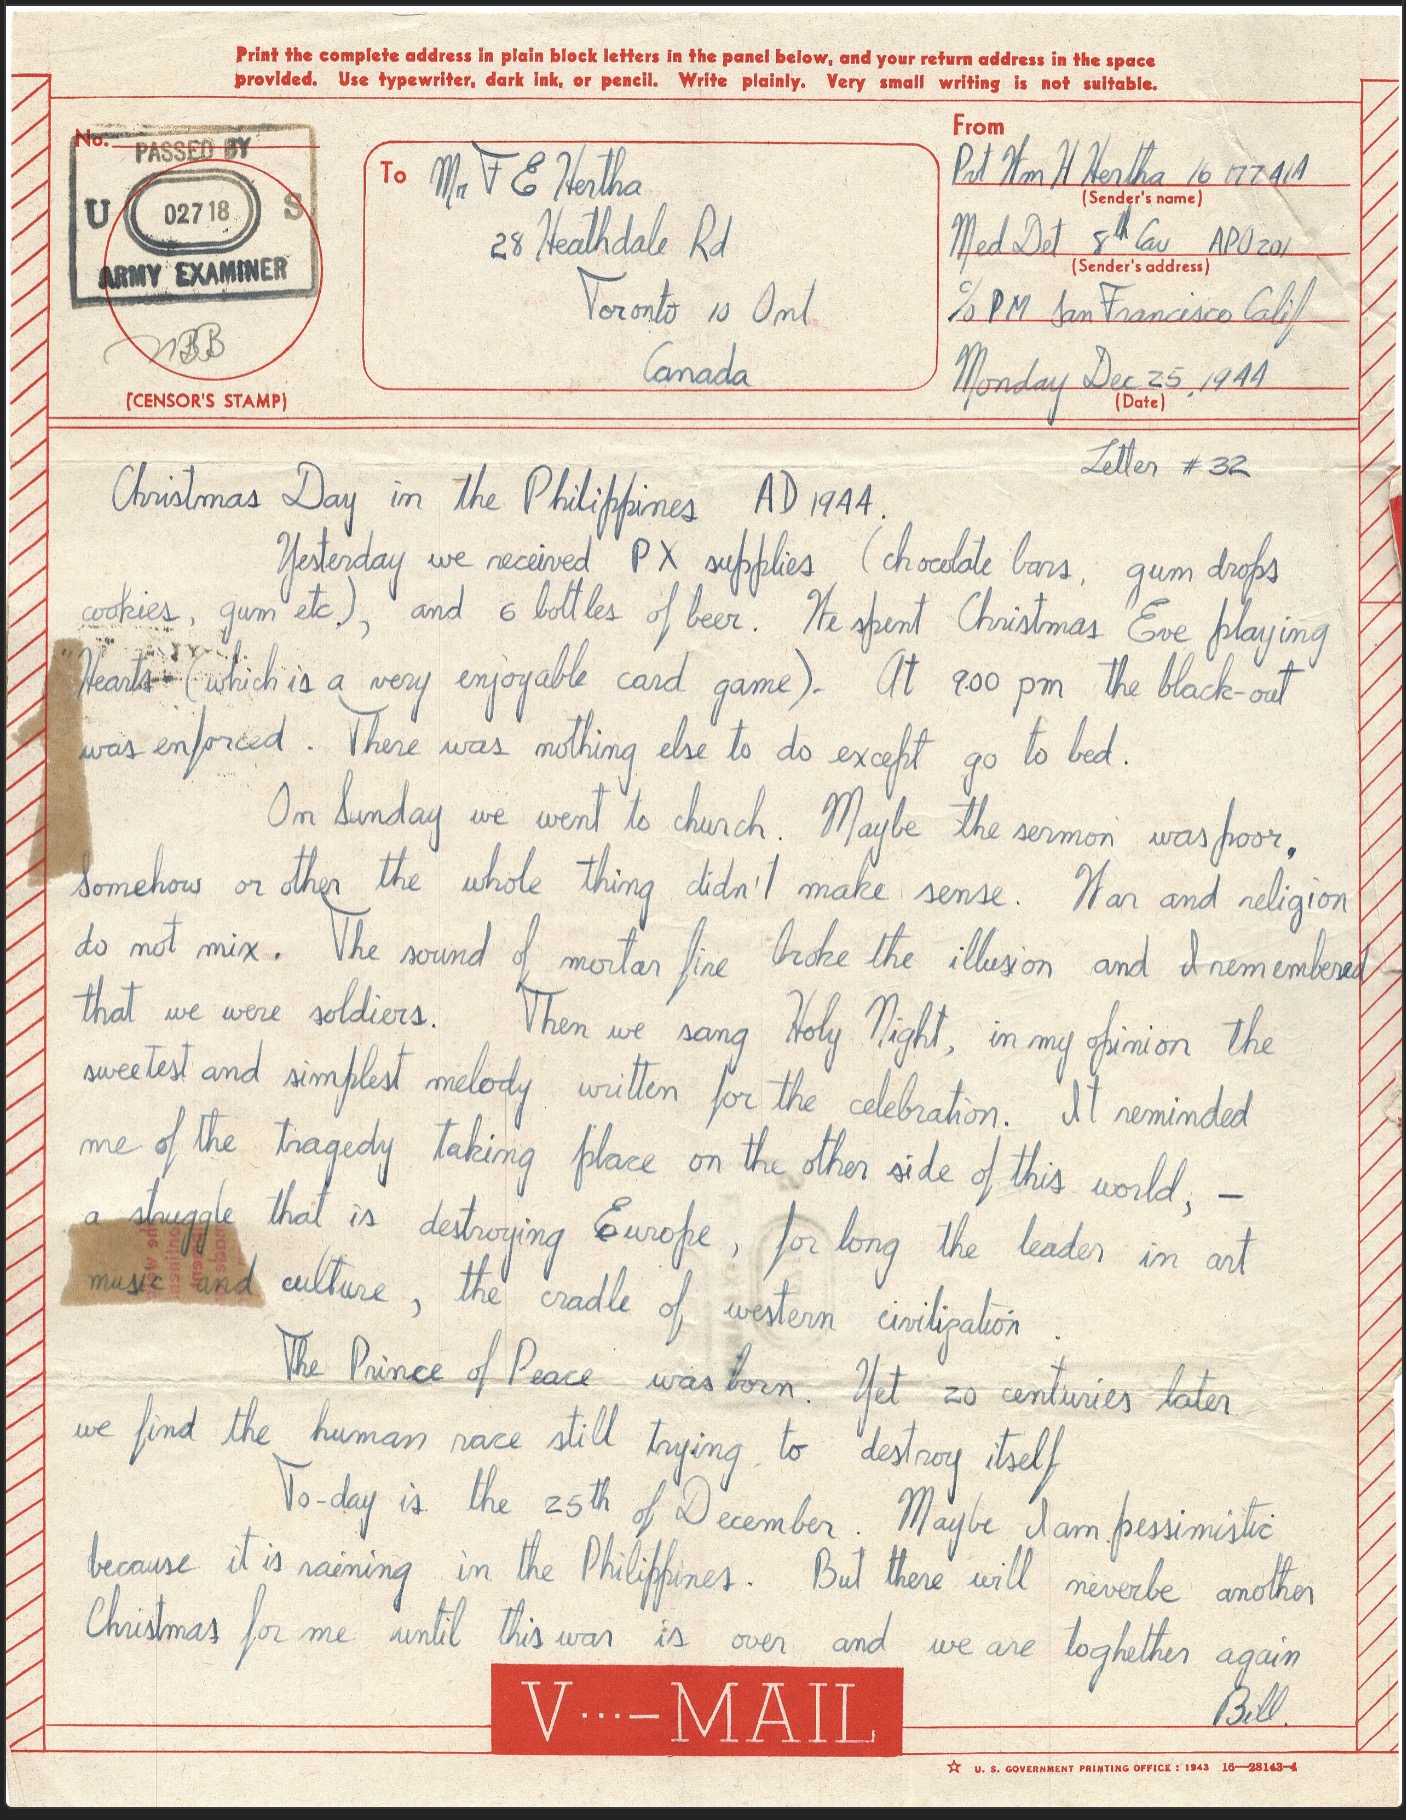 Print the complete address in plain block letters in the panel below, and your return address in the space
provided. Use typewriter, dark ink, or pencil. Write plainly. Very small writing is not suitable.
No.
PASSED BY
U 02718 S
ARMY EXAMINER
(CENSOR'S STAMP)
To Mr F E Hertha
28 Heathdale Rd
Toronto 10 Ont
Canada
From
Pvt Wm H Hertha 16 177414
(Sender's name)
Med Det 8th Cav APO 201
(Sender's address)
c/o PM San Francisco Calif
Monday Dec 25, 1944
(Date)
Letter #32
Christmas Day in the Philippines AD 1944.
Yesterday we received PX supplies (chocolate bars, gum drops
cookies, gum etc.), and 6 bottles of beer. We spent Christmas Eve playing
"Hearts" (which is a very enjoyable card game). At 9.00 pm the black-out
was enforced. There was nothing else to do except go to bed.
On Sunday we went to church. Maybe the sermon was poor.
Somehow or other the whole thing didn't make sense. War and religion
do not mix. The sound of mortar fire broke the illusion and I remembered
that we were soldiers. Then we sang Holy Night, in my opinion the
sweetest and simplest melody written for the celebration. It reminded
me of the tragedy taking place on the other side of this world, –
a struggle that is destroying Europe, for long the leader in art
music and culture, the cradle of western civilization.
The Prince of Peace was born. Yet 20 centuries later
we find the human race still trying to destroy itself
To-day is the 25th of December. Maybe I am pessimistic
because it is raining in the Philippines. But there will never be another
Christmas for me until this war is over and we are toghether again
Bill.
V···—MAIL
☆ U. S. GOVERNMENT PRINTING OFFICE : 1943 16—28143-4